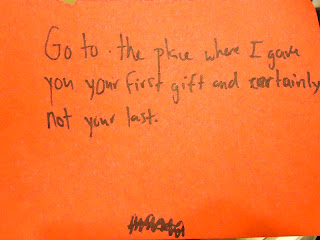 Go to the place where I gave
you your first gift and certainly
not your last.